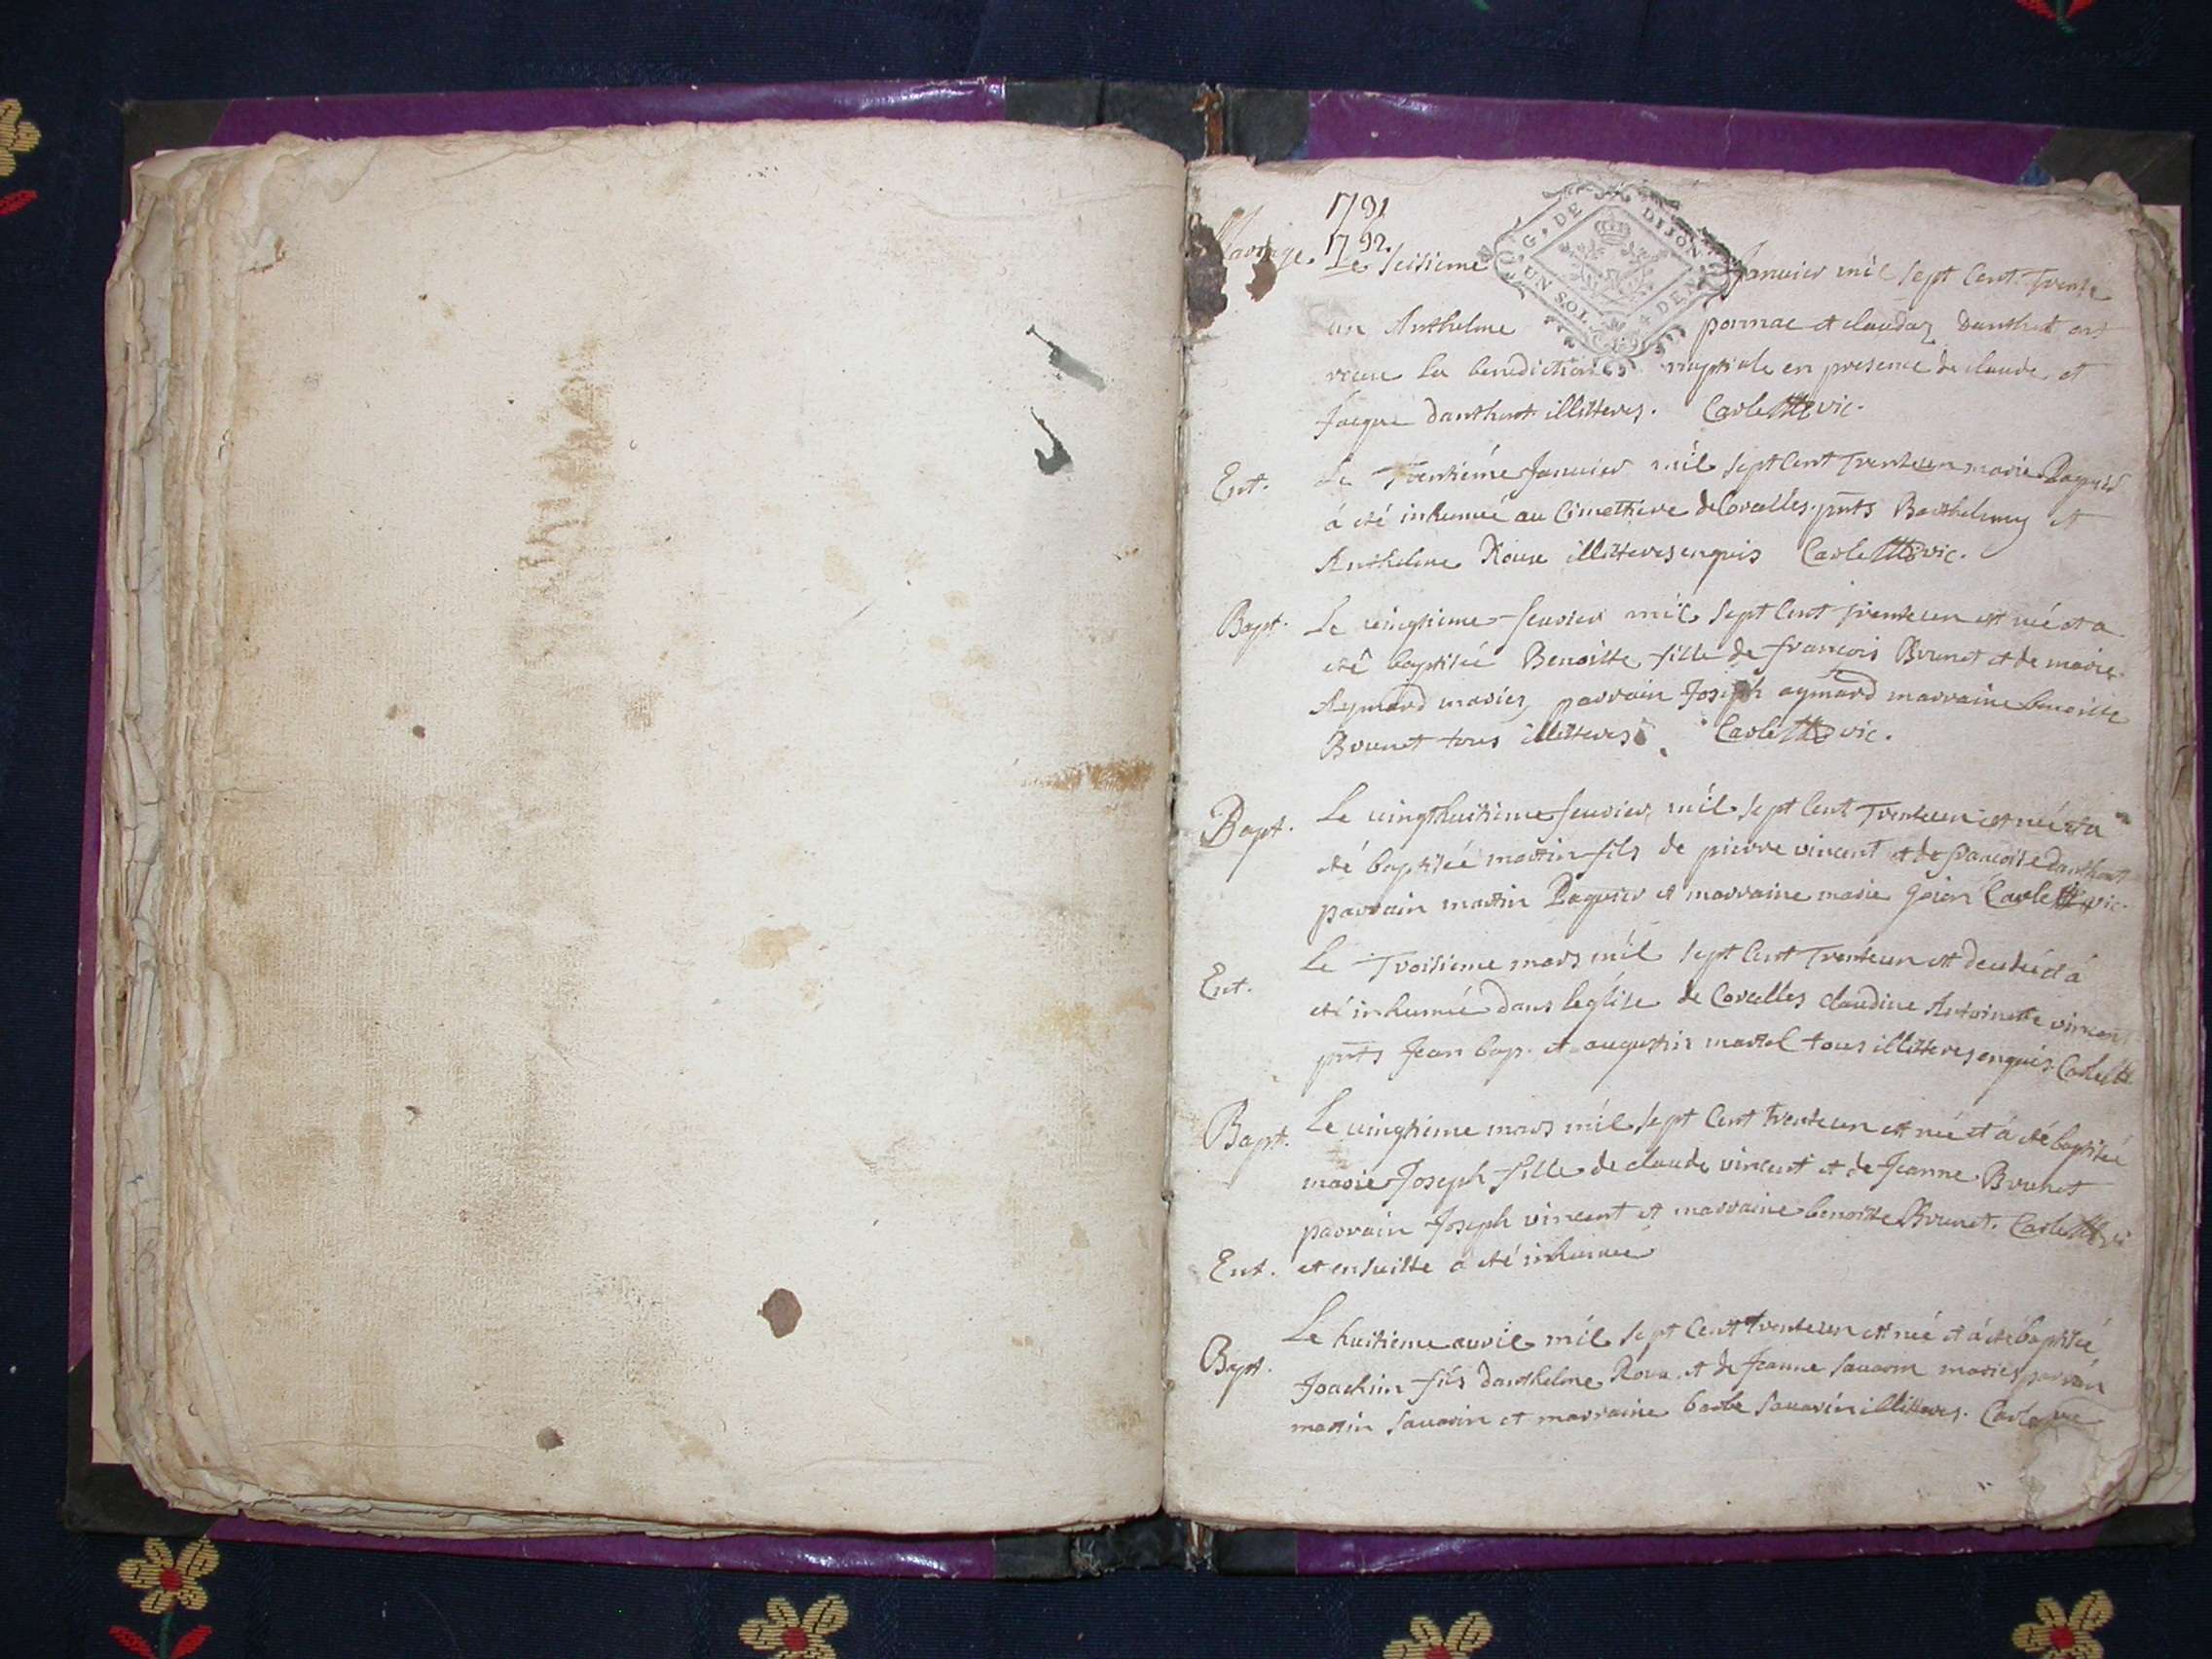 1731
1732
G. DE DIJON
UN SOL 4 DEN
Mariage. Le seisieme Janvier mil sept cent trente
un Anthelme ponnac et claudaz danthont ont
receu la benediction nuptiale en presence de claude et
Jacque danthont illitteres. Carlett vic.
Ent. Le Trentiéme Janvier mil sept cent trenteun marie Paquier
á eté inhumeé au Cimettiere de Corcelles. pnts Barthelemy et
Anthelme Roux illitteres enquis Carlett vic.
Bapt. Le vingtieme fevrier mil sept cent trenteun est neé et a
eté baptiseé Benoitte fille de francois Brunet et de marie
Aymard mariez, parrain Joseph aymard marraine benoitte
Brunet tous illitteres. Carlett vic.
Bapt. Le vingthuitieme fevrier mil sept cent Trenteun est neé et a
eté baptiseé martin fils de pierre vincent et de francoise danthont
parrain martin Paquier et marraine marie Carlett vic.
Ent. Le Troisieme mars mil sept cent Trenteun est decedeé et á
eté inhumeé dans leglise de Corcelles claudine Antoinette vincent
pnts Jean bap. et augustin martel tous illitteres enquis. Carlett
Bapt. Le vingtieme mars mil sept cent trenteun est neé et á eté baptiseé
marie Joseph fille de claude vincent et de Jeanne Brunet
parrain Joseph vincent et marraine benoitte Brunet. Carlett vi
Ent. et ensuitte a eté inhumeé
Bapt. Le huitieme avril mil sept Cent trenteun est neé et á eté baptiseé
Joachim fils danthelme Roux et de Jeanne Savarin mariez parrain
martin Savarin et marraine barbe Savarin illitteres. Carlet vic